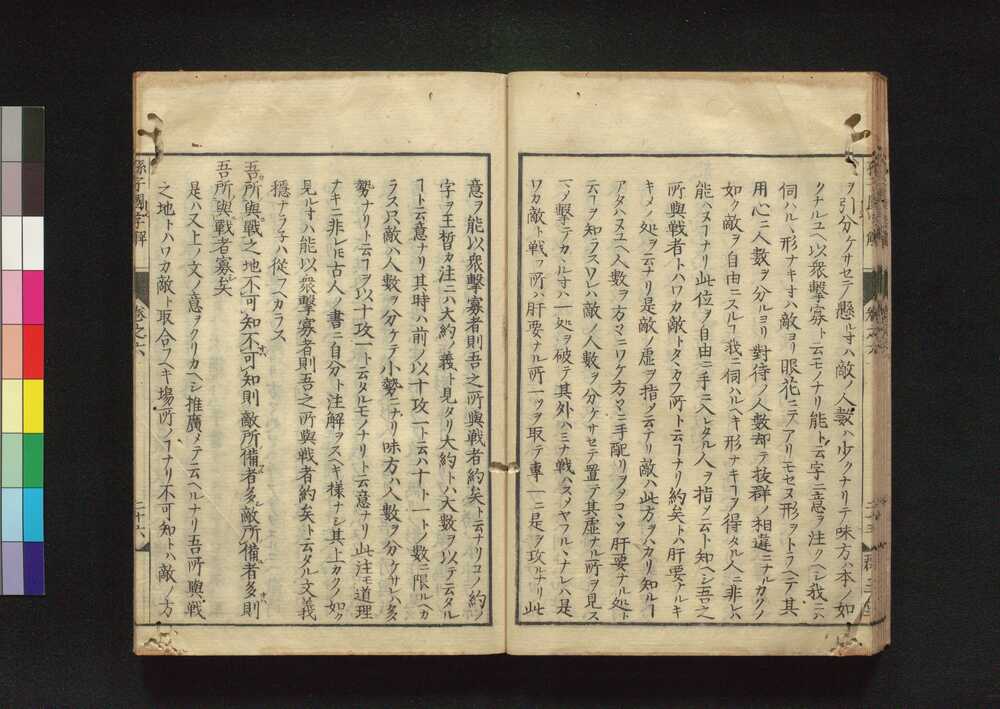 ヲ引分ケサセテ懸ルヿハ敵ノ人数ハ少クナリテ味方ハ本ノ如
クナルユヘ以衆擊寡ト云モノナリ能ト云字ニ意ヲ注クヘシ我ニハ
伺ハルヽ形ナキヿハ敵ヨリ眼花ニテアリモセヌ形ヲトラヘテ其
用心ニ人數ヲ分ルヨリ對待ノ人數却テ抜群ノ相違ニナルカクノ
如ク敵ヲ自由ニスルヿ我ニ伺ハルヘキ形ナキヿヲ得タル人ニ非レハ
能ハヌヿナリ此位ヲ自由ニ手ニ入レタル人ヲ指ノ云ト知ヘシ吾之
所與戰者トハワカ敵トタヽカフ所ト云ヿナリ約矣トハ肝要トルキ
キメノ処ヲ云ナリ是敵ノ虚ヲ指ノ云ナリ敵ハ此方ヲハカリ知ルヿ
アタハヌユヘ人數ヲ方々ニワケ方々ニ手配リヲノコヽソ肝要ナル処ト
云ヿヲ知ラスワレハ敵ノ人數ヲ分ケサセテ置テ其虚ナル所ヲ見ス
マノ擊テカヽルヿハ一処ヲ破テ其外ハミナ戰ハスノヤフルヽナレハ是
ワカ敵ト戰フ所ハ肝要ナル所一ッヲ取テ專一ニ是ヲ攻ルナリ此
意ヲ能以衆擊寡者則吾之所與戰者約矣ト云ナリコノ約ノ
字ヲ王晳カ注ニハ大約ノ義ト見タリ大約トハ大數ヲ以テ云タル
ヿト云意ナリ其時ハ前ノ以十攻一ト云ハ十ト一トノ數ニ限ルヘカ
ラス只敵ハ人數ヲ分ケテ小勢ニナリ味方ハ人數ヲ分ケサレハ多
勢ナリト云ヿヲ以十攻一ト云タルモノナリト云意ナリ此注モ道理
ナキニ非レ𪜈古人ノ書ニ自分ト注解ヲスヘキ樣ナシ其上カクノ如ク
見ルヿハ能以衆擊寡者則吾之所與戰者約矣ト云タル文義
穩ナラチハ從フヘカラス
吾所與戰之地不可知不可知則敵所備者多敵所備者多則
吾所與戰者寡矣
是ハ又上ノ文ノ意ヲクリカヘシ推廣メテ云ヘルナリ吾所與戰
之地トハワカ敵ト取合フヘキ場所ノヿナリ不可知トハ敵ノ方
孫子國字解
卷之六
二十六